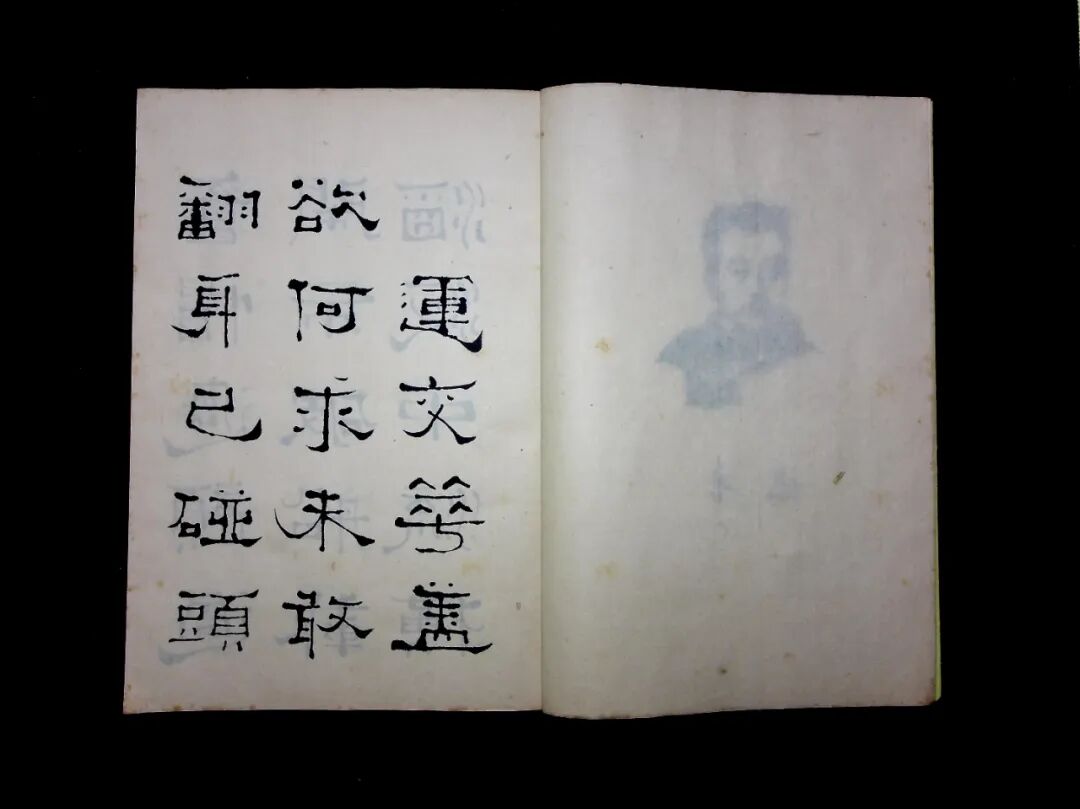 運交華蓋
欲何求未敢
翻身已碰頭